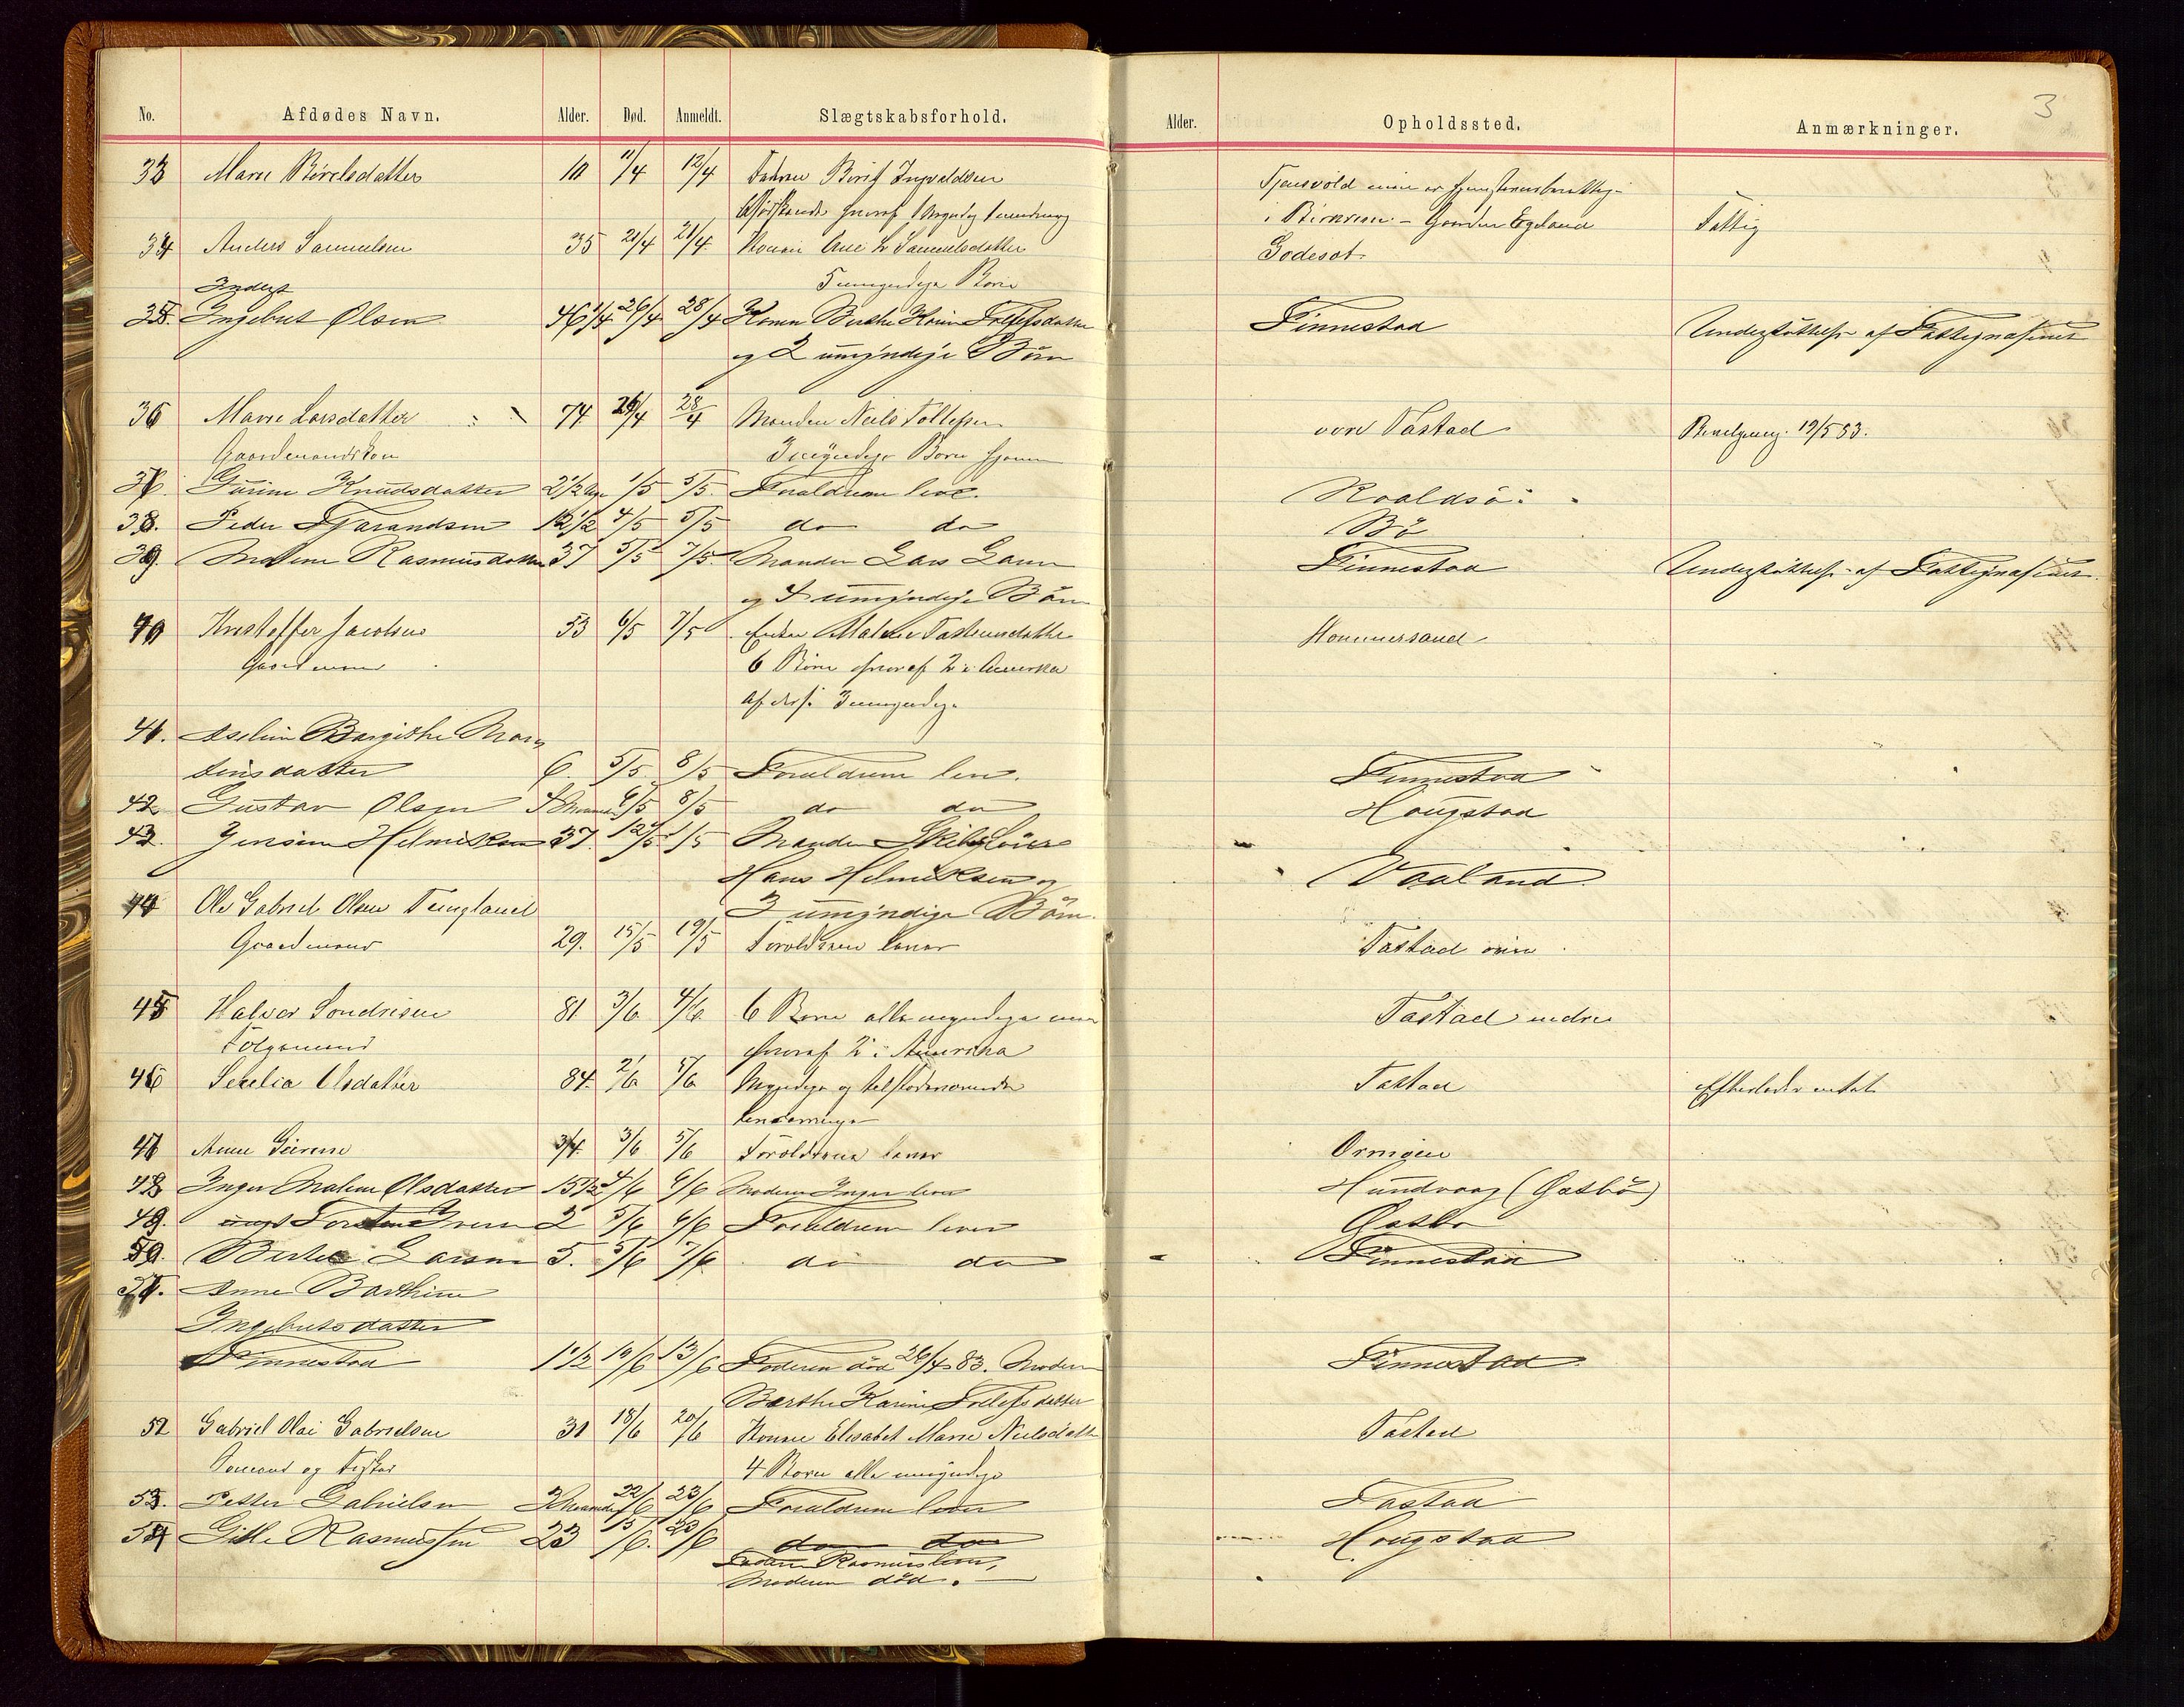 No. Afdødes Navn. Alder. Død. Anmeldt. Slægtskabsforhold. Alder. Opholdssted. Anmærkninger. 3
33 Marie Børelsdatter 10 11/4 12/4 Faderen Berit Ingvaldsen
hvoraf 1 myndig
i Birkrem - Gaarden Egeland Fattig
34 Anders Samuelsen 35 21/4 21/4 Konen Ane L Samuelsdatter Godeset
Inderst 5 umyndige Børn
35. Ingebret Olsen 46 1/4 26/4 28/4 Konen Berthe Karine Tollefsdatter Finnestad Understøttelse af Fattigvæsenet
og 2 umyndige Börn
36 Marie Larsdatter 74 26/4 28/4 Manden Neils Tollefsen Tastad Bevilgning 19/5 83.
Gaardmandskone Børn
37. Gurine Knudsdatter 2 1/2 1/5 5/5. Forældrene leve. Roaldsö
38. Peder Tjarandsen 12 1/2 4/5 5/5 do do Bö
39. Malene Rasmusdatter 37 5/5 7/5. Manden Lars Larsen Finnestad Understøttelse af Fattigvæsenet.
og 4 umyndige Börn
40 Kristoffer Jacobsen 53 6/5 7/5 Enken Malene Hommersand
Gaardmand 6 Børn hvoraf 2 i Amerika
af disse 3 umyndige
41. Aseline Bergithe Mor
tensdatter 6. 5/5 8/5 Forældrene lever. Finnestad
42 Gustav Olsen 4 Maaneder 6/5 8/5 do do Hougstad
43. Jensine Helmiksen 37. 12/5 /5 Manden Skibsfører
Hans Helmiksen og Vaaland
44 Ole Gabriel Olsen Tengland 3 umyndige Börn.
Gaardmand 29. 15/5 19/5 Forældrene lever Tastad
45 Halvor Sondresen 81 3/6 4/6 6 Børn alle myndige Tastad indre
Følgemand hvoraf 2 i Amerika
46 Serelia Olsdatter 84. 2/6 5/6 Myndige og Tastad
47 Anne 3/4 3/6 5/6 Forældrene lever Ormøen
48 Inger Malene Olsdatter 15 1/2 4/6 6/6 Moderen Inger lever Hundvaag (Gasbö)
49. Torsten Iversen 2 5/6 6/6 Forældrene lever Gasbö
50. Berthe Larsen 5. 5/6 7/6 do do Finnestad
51. Anne Barthine
Ingebretsdatter
Finnestad 1 1/2 10/6 13/6 Faderen död 26/4 83. Moderen Finnestad
Berthe Karine Tollefsdatter
52 Gabriel Olai Gabrielsen 30 18/6 20/6 Konen Elisabet Marie Nielsdatt Tasted
og Fisker 4 Børn alle umyndige
53. Petter Gabrielsen 3 Maaneder 22/6 23/6 Forældrene lever Tastad
54 Gitle Rasmussen 23 15/6. 23/6 do do Hougstad
Faderen Rasmus lever,
Moderen död.